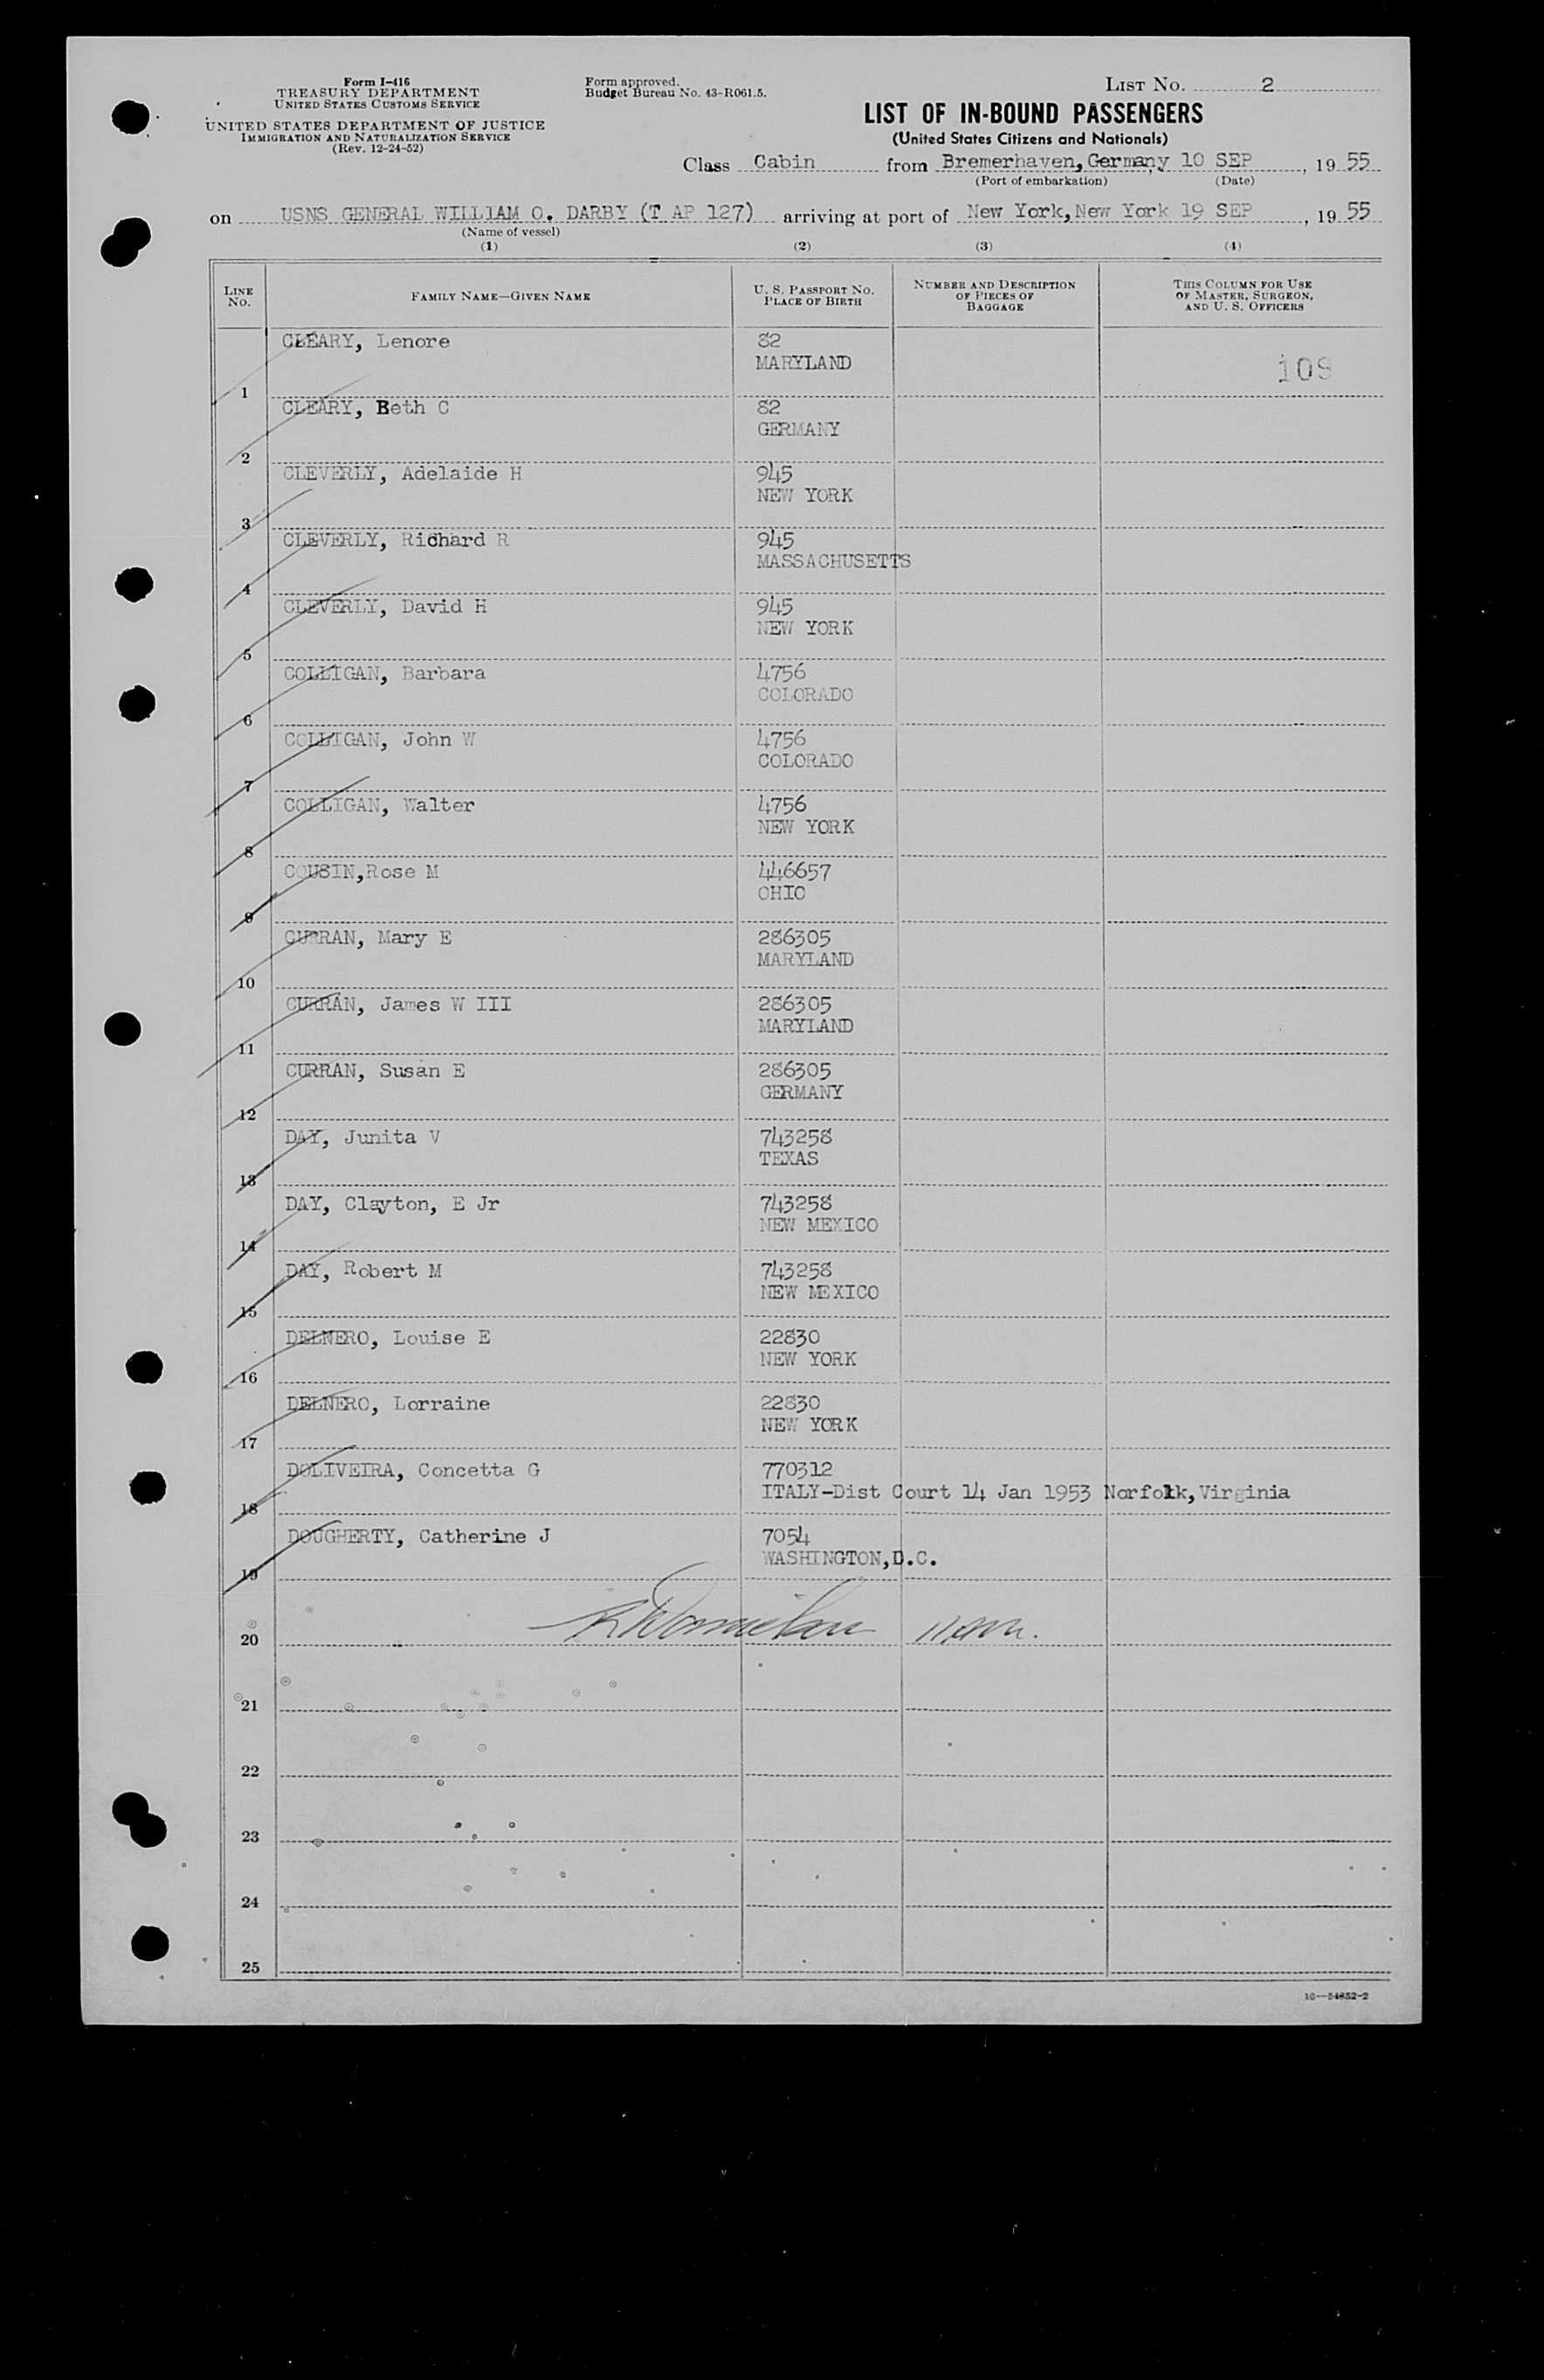 Form I-416
TREASURY DEPARTMENT
UNITED STATES CUSTOMS SERVICE
UNITED STATES DEPARTMENT OF JUSTICE
IMMIGRATION AND NATURALIZATION SERVICE
(Rev. 12-24-52)
Form approved.
Budget Bureau No. 43-R061.5.
LIST NO. 2
LIST OF IN-BOUND PASSENGERS
(United States Citizens and Nationals)
Class Cabin from Bremerhaven, Germany 10 SEP, 19 55
(Port of embarkation) (Date)
on USNS GENERAL WILLIAM O. DARBY (T AP 127) arriving at port of New York, New York 19 SEP, 19 55
(Name of vessel)
(1) (2) (3) (4)
LINE NO. FAMILY NAME—GIVEN NAME U. S. PASSPORT NO. PLACE OF BIRTH NUMBER AND DESCRIPTION OF PIECES OF BAGGAGE THIS COLUMN FOR USE OF MASTER, SURGEON, AND U. S. OFFICERS
CLEARY, Lenore 82
MARYLAND
1
CLEARY, Beth C 82
GERMANY
2
CLEVERLY, Adelaide H 945
NEW YORK
3
CLEVERLY, Richard R 945
MASSACHUSETTS
4
CLEVERLY, David H 945
NEW YORK
5
COLLIGAN, Barbara 4756
COLORADO
6
COLLIGAN, John W 4756
COLORADO
7
COLLIGAN, Walter 4756
NEW YORK
8
COUSIN,Rose M 446657
OHIO
9
CURRAN, Mary E 286305
MARYLAND
10
CURRAN, James W III 286305
MARYLAND
11
CURRAN, Susan E 286305
GERMANY
12
DAY, Junita V 743258
TEXAS
13
DAY, Clayton, E Jr 743258
NEW MEXICO
14
DAY, Robert M 743258
NEW MEXICO
15
DELNERO, Louise E 22830
NEW YORK
16
DELNERO, Lorraine 22830
NEW YORK
17
DOLIVEIRA, Concetta G 770312
ITALY-Dist Court 14 Jan 1953 Norfolk,Virginia
18
DOUGHERTY, Catherine J 7054
WASHINGTON,D.C.
19
20
21
22
23
24
25
16—54652-2